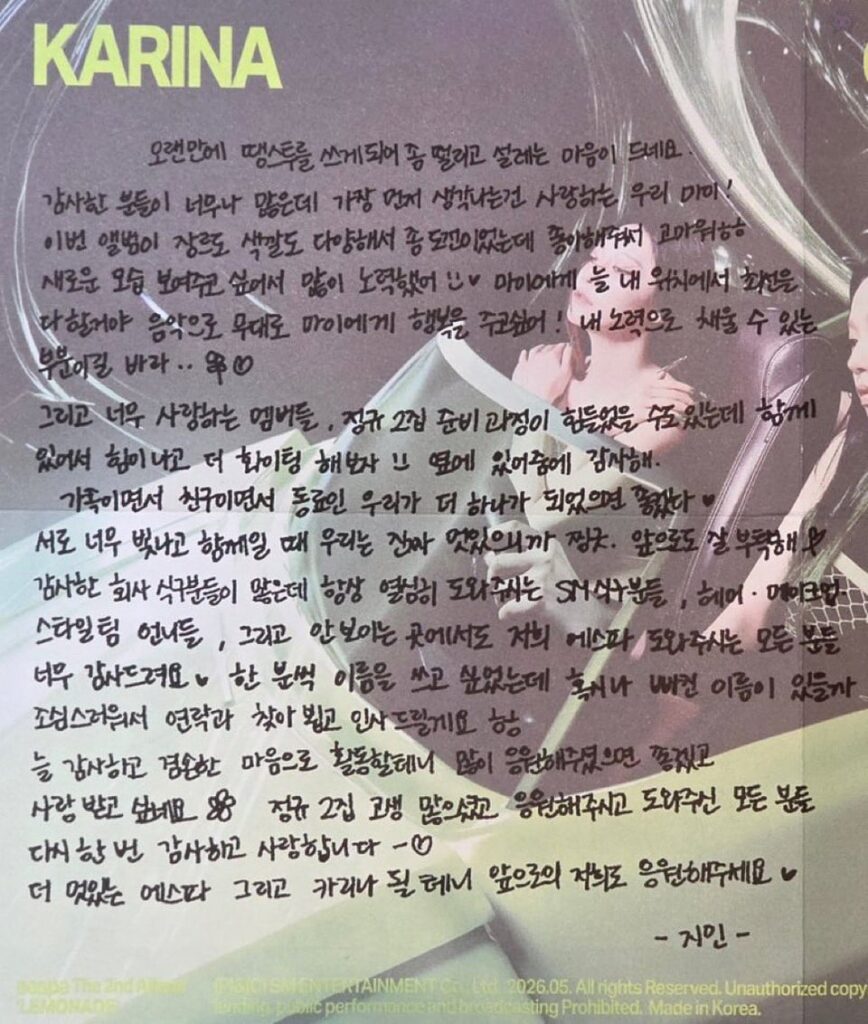 KARINA
오랜만에 땡스투를 쓰게되어 좀 떨리고 설레는 마음이 드네요.
감사한 분들이 너무나 많은데 가장 먼저 생각나는건 사랑하는 우리 마이!
이번 앨범이 장르도 색깔도 다양해서 좀 도전이었는데 좋아해줘서 고마워ㅎㅎ
새로운 모습 보여주고 싶어서 많이 노력했어 ♥ 마이에게 늘 내 위치에서 최선을
다할거야 음악으로 무대로 마이에게 행복을 주고싶어! 내 노력으로 채울 수 있는
부분이길 바라.. ♡
그리고 너무 사랑하는 멤버들, 정규 2집 준비 과정이 힘들었을 수도 있는데 함께
있어서 힘이나고 더 화이팅 해보자 !! 옆에 있어줌에 감사해.
가족이면서 친구이면서 동료인 우리가 더 하나가 되었으면 좋겠다 ♥
서로 너무 빛나고 함께일 때 우리는 진짜 멋있으니까 찜긋. 앞으로도 잘 부탁해
감사한 회사 식구분들이 많은데 항상 열심히 도와주시는 SM식구분들, 헤어·메이크업·
스타일팀 언니들, 그리고 안보이는 곳에서도 저희 에스파 도와주시는 모든 분들
너무 감사드려요 ♥ 한 분씩 이름을 쓰고 싶었는데 혹시나 빼먼 이름이 있을까
조심스러워서 연락과 찾아 뵙고 인사드릴게요 헝
늘 감사하고 겸손한 마음으로 활동할테니 많이 응원해주셨으면 좋겠고
사랑 받고 싶네요 정규 2집 고생 많으셨고 응원해주시고 도와주신 모든 분들
다시 한 번 감사하고 사랑합니다 -♡
더 멋있는 에스파 그리고 카리나 될 테니 앞으로의 저희도 응원해주세요 ♥
- 지민 -
aespa The 2nd Album
'LEMONADE'
(P)&(C) SM ENTERTAINMENT Co., Ltd. 2026.05. All rights Reserved. Unauthorized copy
lending, public performance and broadcasting Prohibited. Made in Korea.